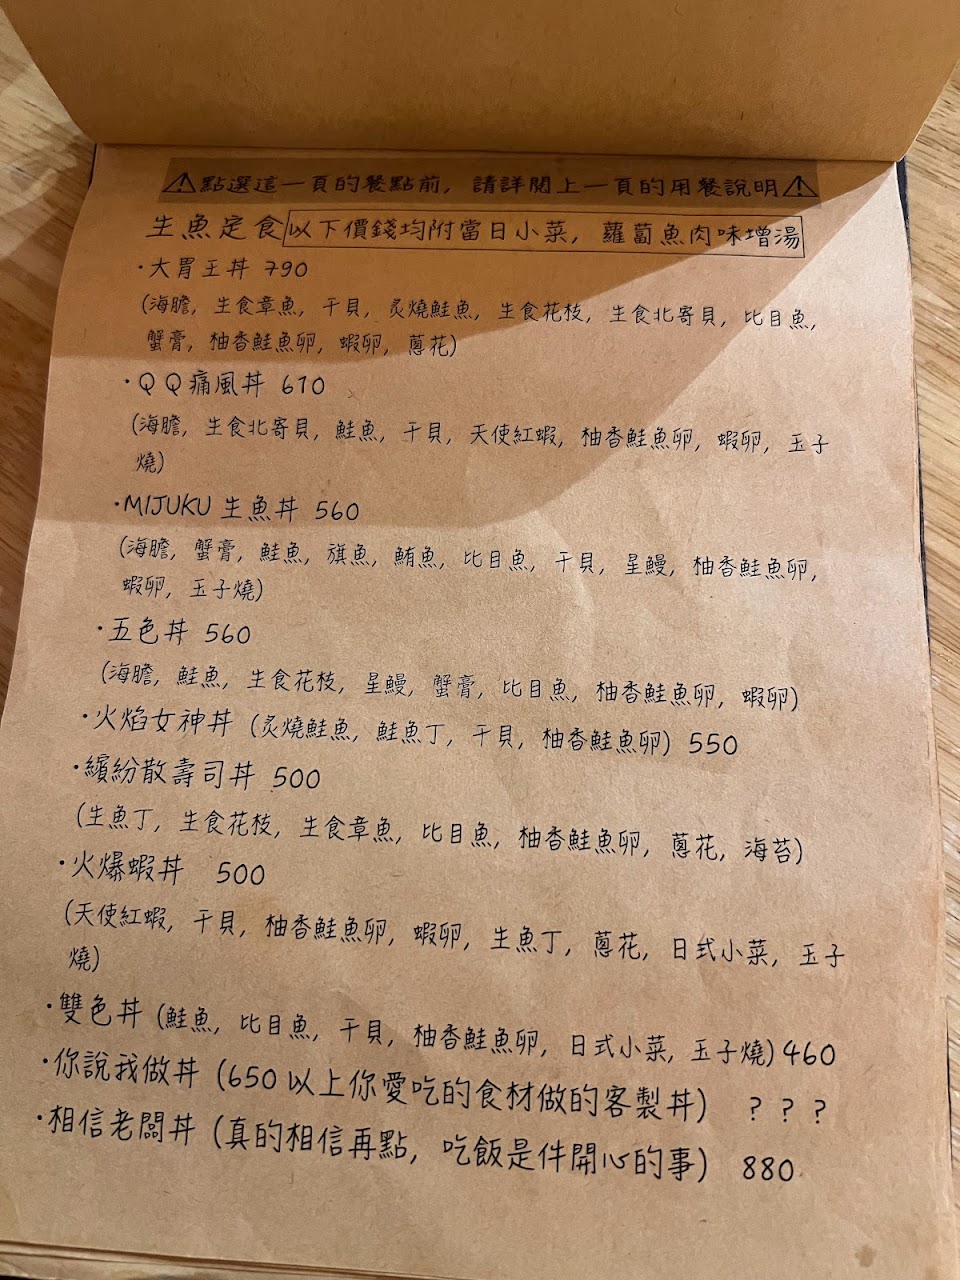 ⚠點選這一頁的餐點前，請詳閱上一頁的用餐說明⚠
生魚定食 以下價錢均附當日小菜，蘿蔔魚肉味增湯
·大胃王丼 790
(海膽，生食章魚，干貝，炙燒鮭魚，生食花枝，生食北寄貝，比目魚，
蟹膏，柚香鮭魚卵，蝦卵，蔥花)
·QQ痛風丼 610
(海膽，生食北寄貝，鮭魚，干貝，天使紅蝦，柚香鮭魚卵，蝦卵，玉子
燒)
·MIJUKU 生魚丼 560
(海膽，蟹膏，鮭魚，旗魚，鮪魚，比目魚，干貝，星鰻，柚香鮭魚卵，
蝦卵，玉子燒)
·五色丼 560
(海膽，鮭魚，生食花枝，星鰻，蟹膏，比目魚，柚香鮭魚卵，蝦卵)
·火焰女神丼 (炙燒鮭魚，鮭魚丁，干貝，柚香鮭魚卵) 550
·繽紛散壽司丼 500
(生魚丁，生食花枝，生食章魚，比目魚，柚香鮭魚卵，蔥花，海苔)
·火爆蝦丼 500
(天使紅蝦，干貝，柚香鮭魚卵，蝦卵，生魚丁，蔥花，日式小菜，玉子
燒)
·雙色丼 (鮭魚，比目魚，干貝，柚香鮭魚卵，日式小菜，玉子燒) 460
·你說我做丼 (650以上你愛吃的食材做的客製丼) ？？？
·相信老闆丼 (真的相信再點，吃飯是件開心的事) 880